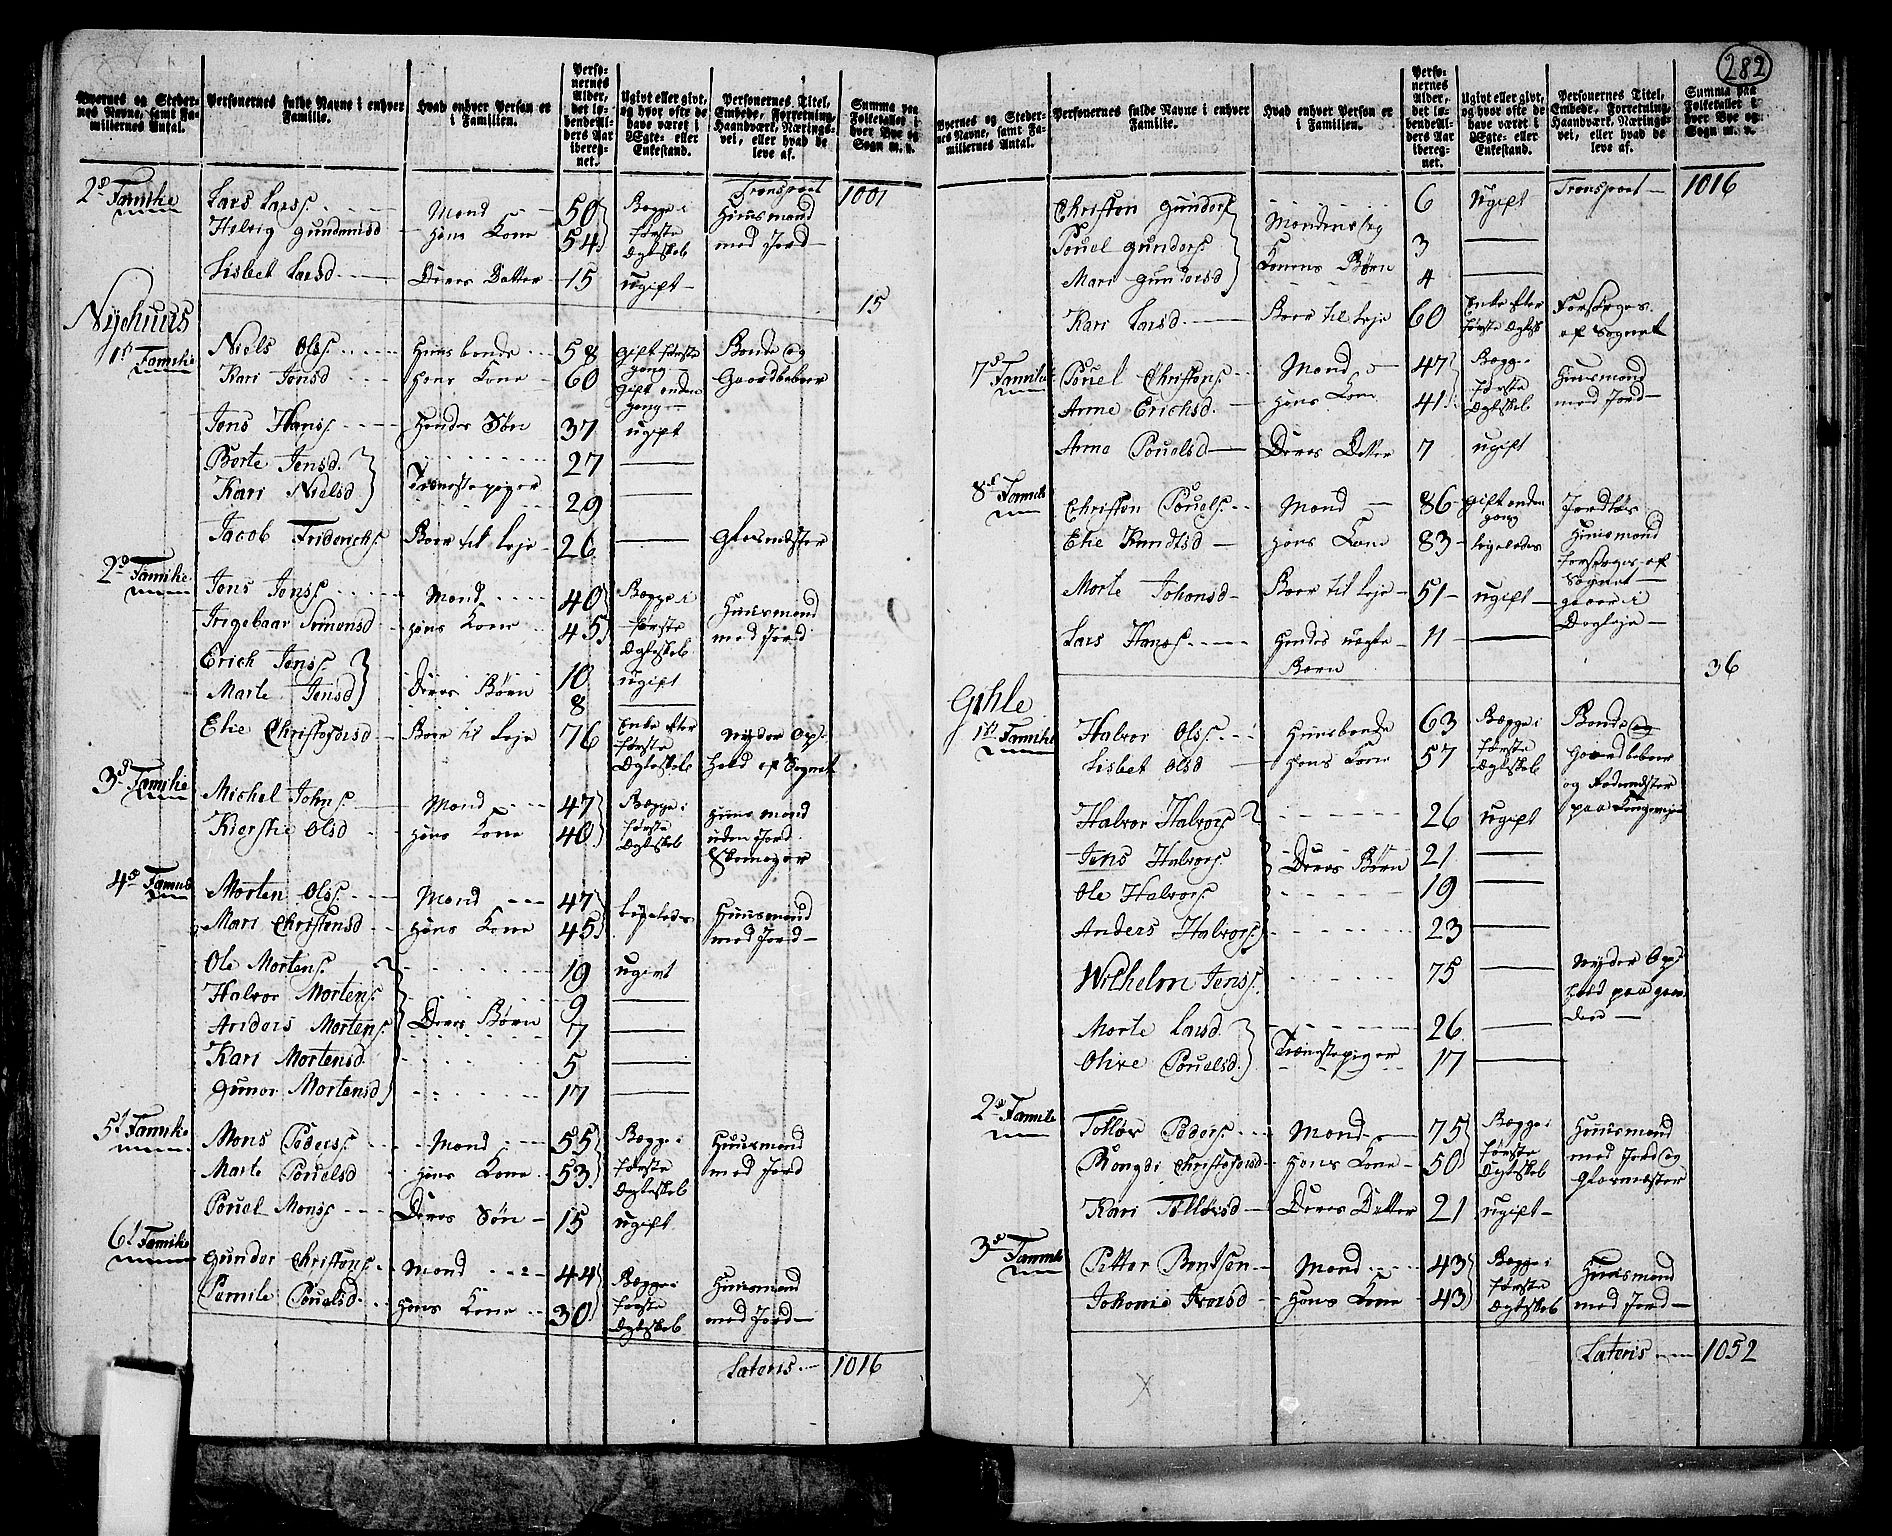 Byernes og Stedernes Navne, samt Familiernes Antal.
Personernes fulde Navne i enhver Familie.
Hvad enhver Person er i Familien.
Personernes Alder, det løbendeAlders Aar iberegnet.
Ugivt eller givt, og hvor ofte de have været i Egte- eller Enkestand.
Personernes Titel, Embede, Forretning, Haandværk, Næringsvei, eller hvad de leve af.
Summa paa Folketallet i hver Bye og Sogn m. v.
Transport 1001
2d Familie
Lars Lars. Mand 50 Begge i første Egteskab Huusmand med Jord
Helvig Gundersd Hans Kone 54
Lisbet Larsd. Deres Datter 15 ugift
15
Nyehuus
1st Familie
Niels Ols. Huusbonde 58 gift første gang Bonde og
Kari Jensd Hans Kone 60 gift anden gang Gaardbeboer
Jens Hans. Hendes Søn 37 ugift
Berte Jensd. 27 —
Kari Nielsd Tienestepiger 29 —
Jacob Friderichs. Boer til Leje 26 — Glasmester
2d Familie
Jens Jens. Mand 40 Begge i første Egteskab Huusmand med Jord
Ingebaar Simensd Hans Kone 45
Erich Jens. 10 ugift
Marte Jensd Deres Børn 8 —
Elie Christofersd Boer til Leje 76 Enke efter første Egteskab Nyder Ophold af Sognet
3d Familie
Michel Johns. Mand 47 Begge i første Egteskab Huusmand uden Jord Skomager
Kierstie Olsd Hans Kone 40
4d Familie
Morten Ols. Mand 47 ligeledes Huusmand med Jord
Mari Christensd Hans Kone 45
Ole Mortens. 19 ugivt
Halvor Mortens. 9 —
Anders Mortens. Deres Børn 7 —
Kari Mortensd 5 —
Gunor Mortensd 17 —
5t Familie
Mons Peders. Mand 55 Begge i første Egteskab Huusmand med Jord
Marte Pouelsd Hans Kone 53
Pouel Mons. Deres Søn 15 ugift
6t Familie
Gunder Christens. Mand 44 Begge i første Egteskab Huusmand med Jord
Pernile Pouelsd. Hans Kone 30
Lateris 1016
282
Byernes og Stedernes Navne, samt Familiernes Antal.
Personernes fulde Navne i enhver Familie.
Hvad enhver Person er i Familien.
Personernes Alder, det løbendeAlders Aar iberegnet.
Ugivt eller givt, og hvor ofte de have været i Egte- eller Enkestand.
Personernes Titel, Embede, Forretning, Haandværk, Næringsvei, eller hvad de leve af.
Summa paa Folketallet i hver Bye og Sogn m. v.
Transport 1016
Christen Gunders. Mandens og 6 Ugift
Pouel Gunders. Konens Børn 3 —
Mari Gundersd 4 —
Kari Larsd. Boer til Leje 60 Enke efter første Egtesk Forsørges af Sognet
7d Familie
Pouel Christens. Mand 47 Begge første Egteskab Huusmand med Jord
Anne Erichsd. Hans Kone 41
Anne Pouelsd Deres Datter 7 ugift
8d Familie
Christen Pouels. Mand 86 gift anden gang Jordløs Huusmand forsørges af Sognet
Elie Knudtsd Hans Kone 83 ligeledes
Marte Johansd Boer til Leje 51 ugift gaaer i Dagleje
Lars Hans. Hendes uægte Barn 11 —
36
Gihle
1st Familie
Halvor Ols. Huusbonde 63 Begge i første Egteskab Bonde og Gaardbeboer og Rodemester paa Kongeveje
Lisbet Olsd Hans Kone 57
Halvor Halvors. 26 ugift
Jens Halvors. Deres Børn 21 —
Ole Halvors. 19 —
Anders Halvors. 23 —
Wilhelm Jens. 75 — Nyder Ophold paa Gaarden
Marte Larsd. 26 —
Olive Pouelsd. Tienestepiger 17 —
2d Familie
Tolløv Peders. Mand 75 Begge i første Egteskab Huusmand med Jord og Glarmester
Rongdi Christofersd Hans Kone 50
Kari Tolløvsd Deres Datter 21 ugift
3d Familie
Petter Bentsen Mand 43 Begge i første Egteskab Huusmand med Jord
Johanne Iversd Hans Kone 43
Lateris 1052